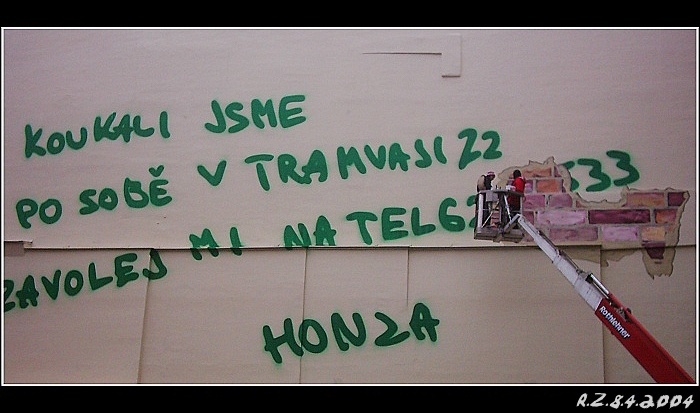 KOUKALI JSME
PO SOBĚ V TRAMVAJI 22
ZAVOLEJ MI NA TEL 62 533
HONZA
Rothlehner
R.Z. 8.4.2004